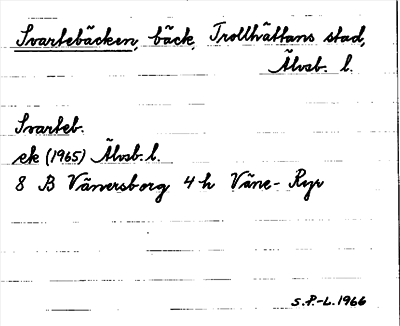 Svartebäcken, bäck, Trollhättans stad,
Älvsb. l.
Svarteb.
ek (1965) Älvsb. l.
8 B Vänersborg 4 h Väne-Ryr
S.P.-L. 1966